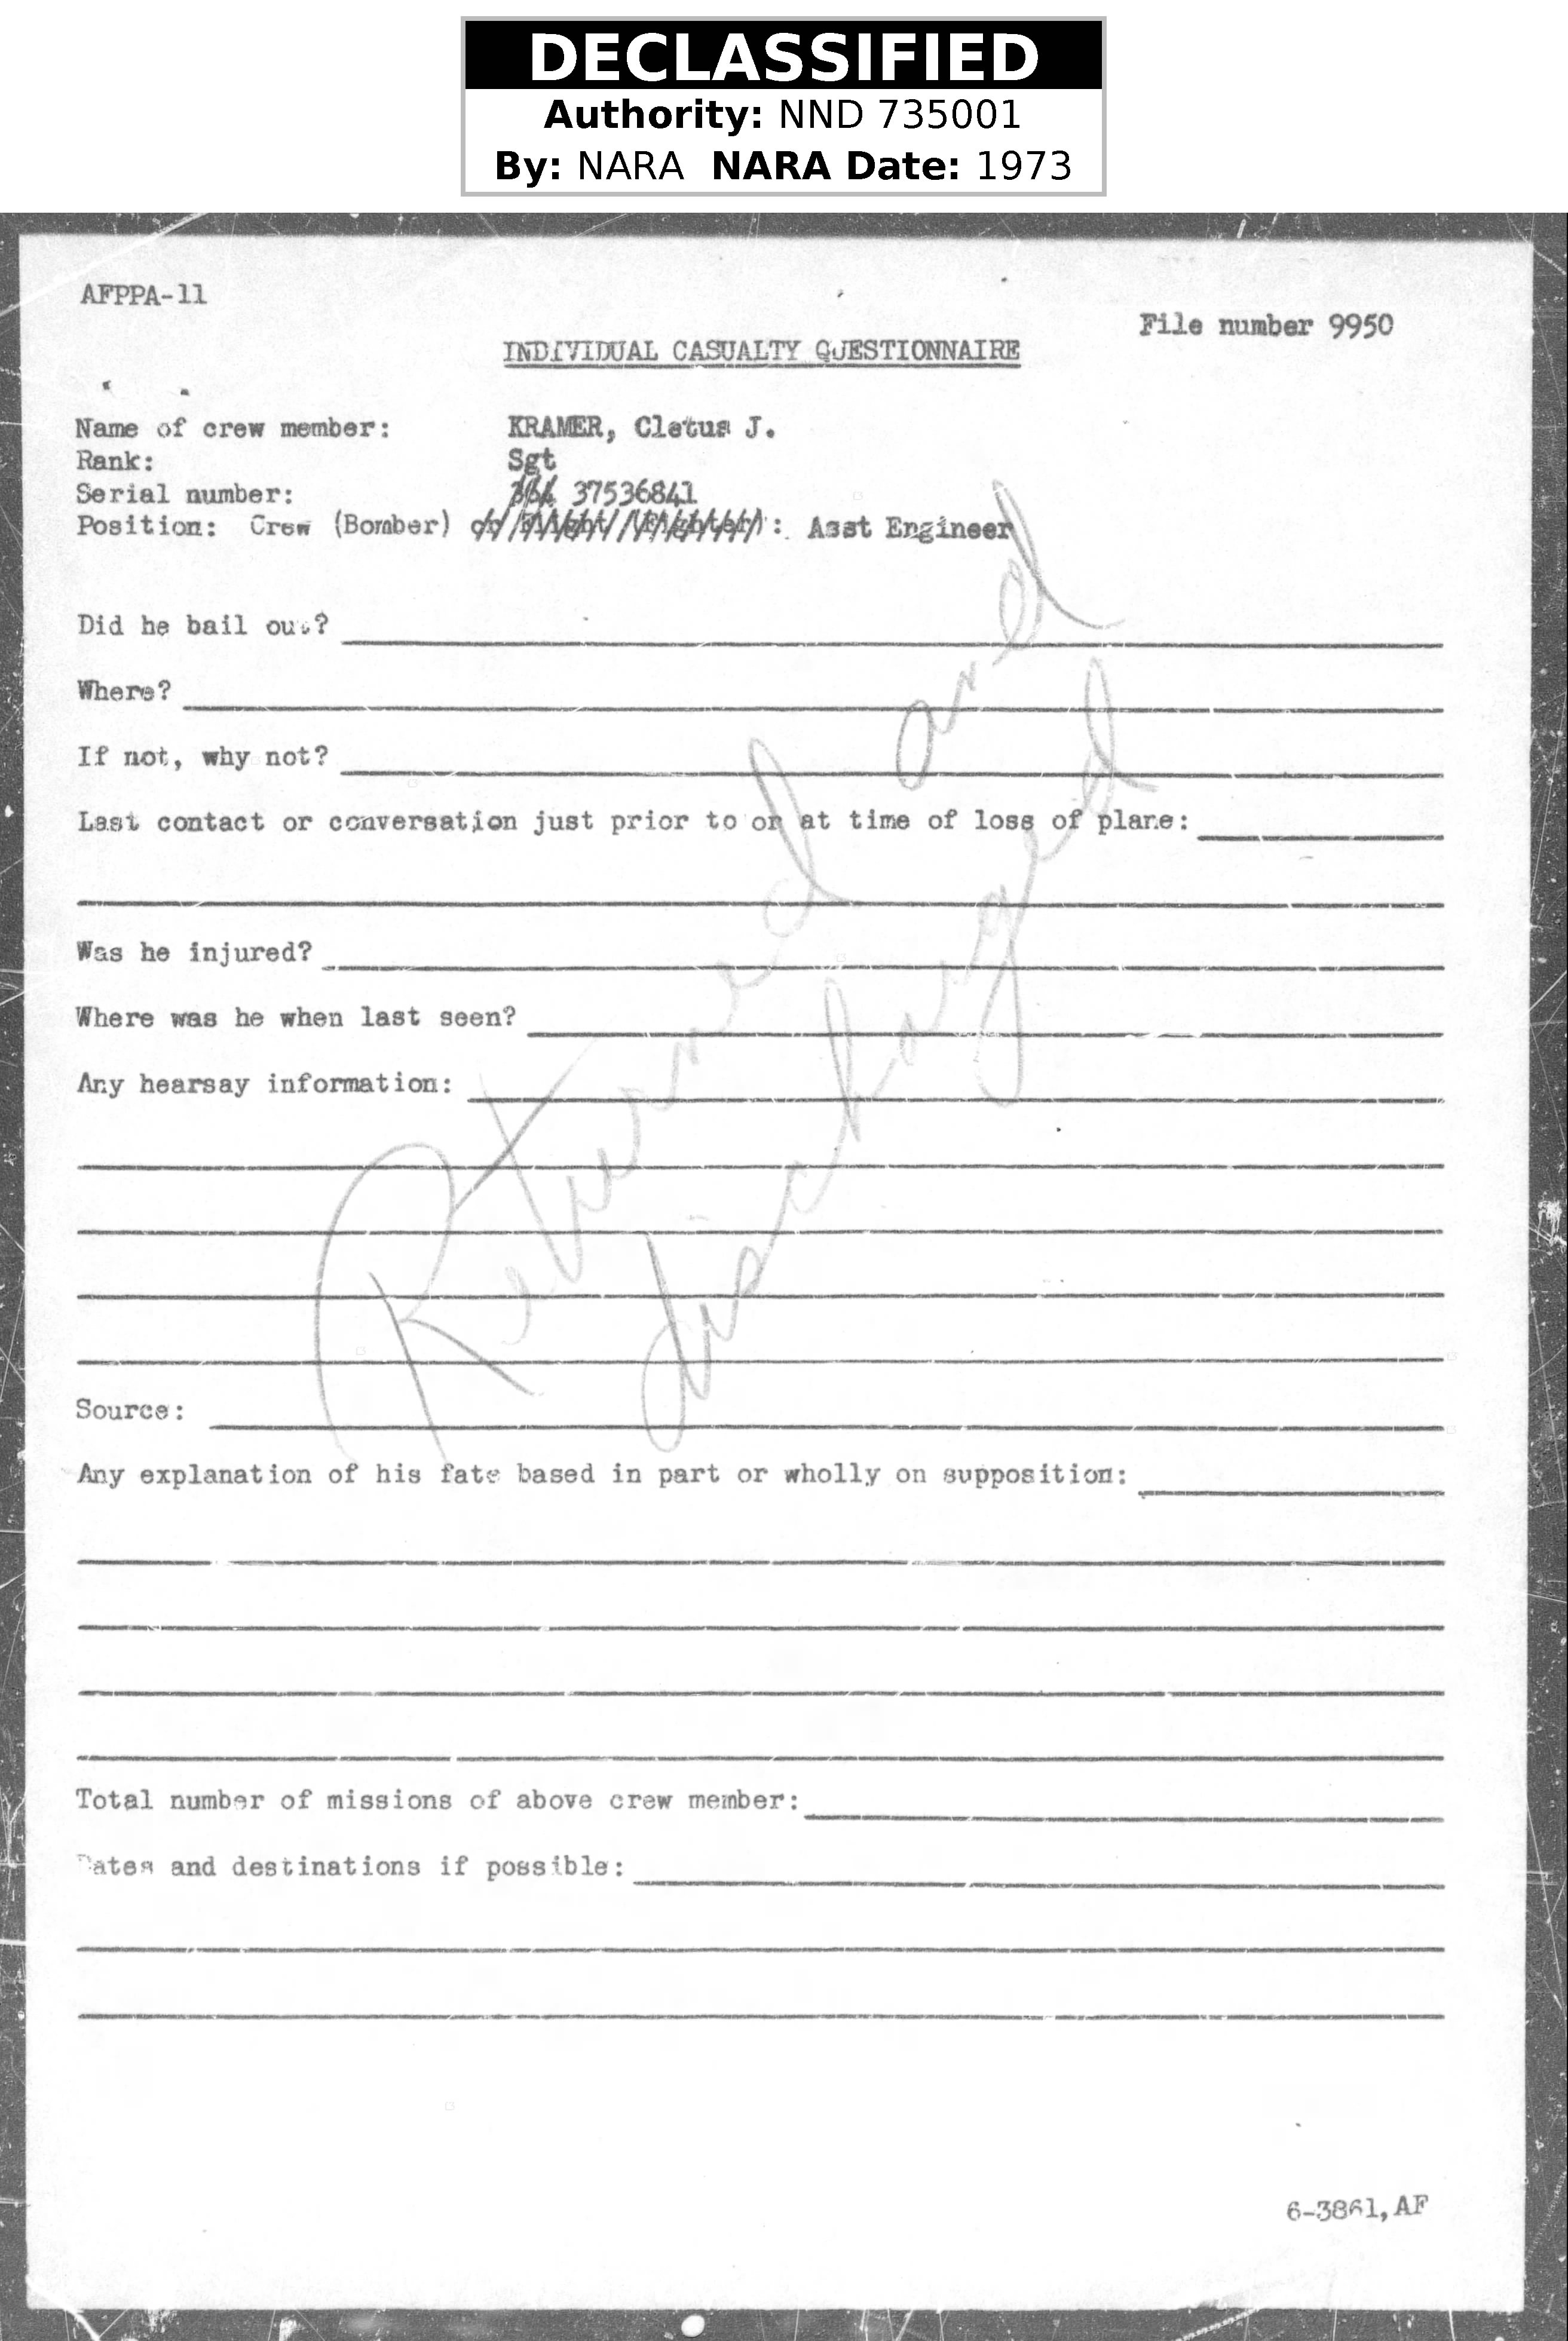 DECLASSIFIED
Authority: NND 735001
By: NARA NARA Date: 1973
AFPPA-11
File number 9950
INDIVIDUAL CASUALTY QUESTIONNAIRE
Name of crew member: KRAMER, Cletus J.
Rank: Sgt
Serial number: 37536841
Position: Crew (Bomber) or Flight (Fighter): Asst Engineer
Did he bail out?
Where?
If not, why not?
Last contact or conversation just prior to or at time of loss of plane:
Was he injured?
Where was he when last seen?
Any hearsay information:
Returned and
discharged
Source:
Any explanation of his fate based in part or wholly on supposition:
Total number of missions of above crew member:
Dates and destinations if possible:
6-3861,AF